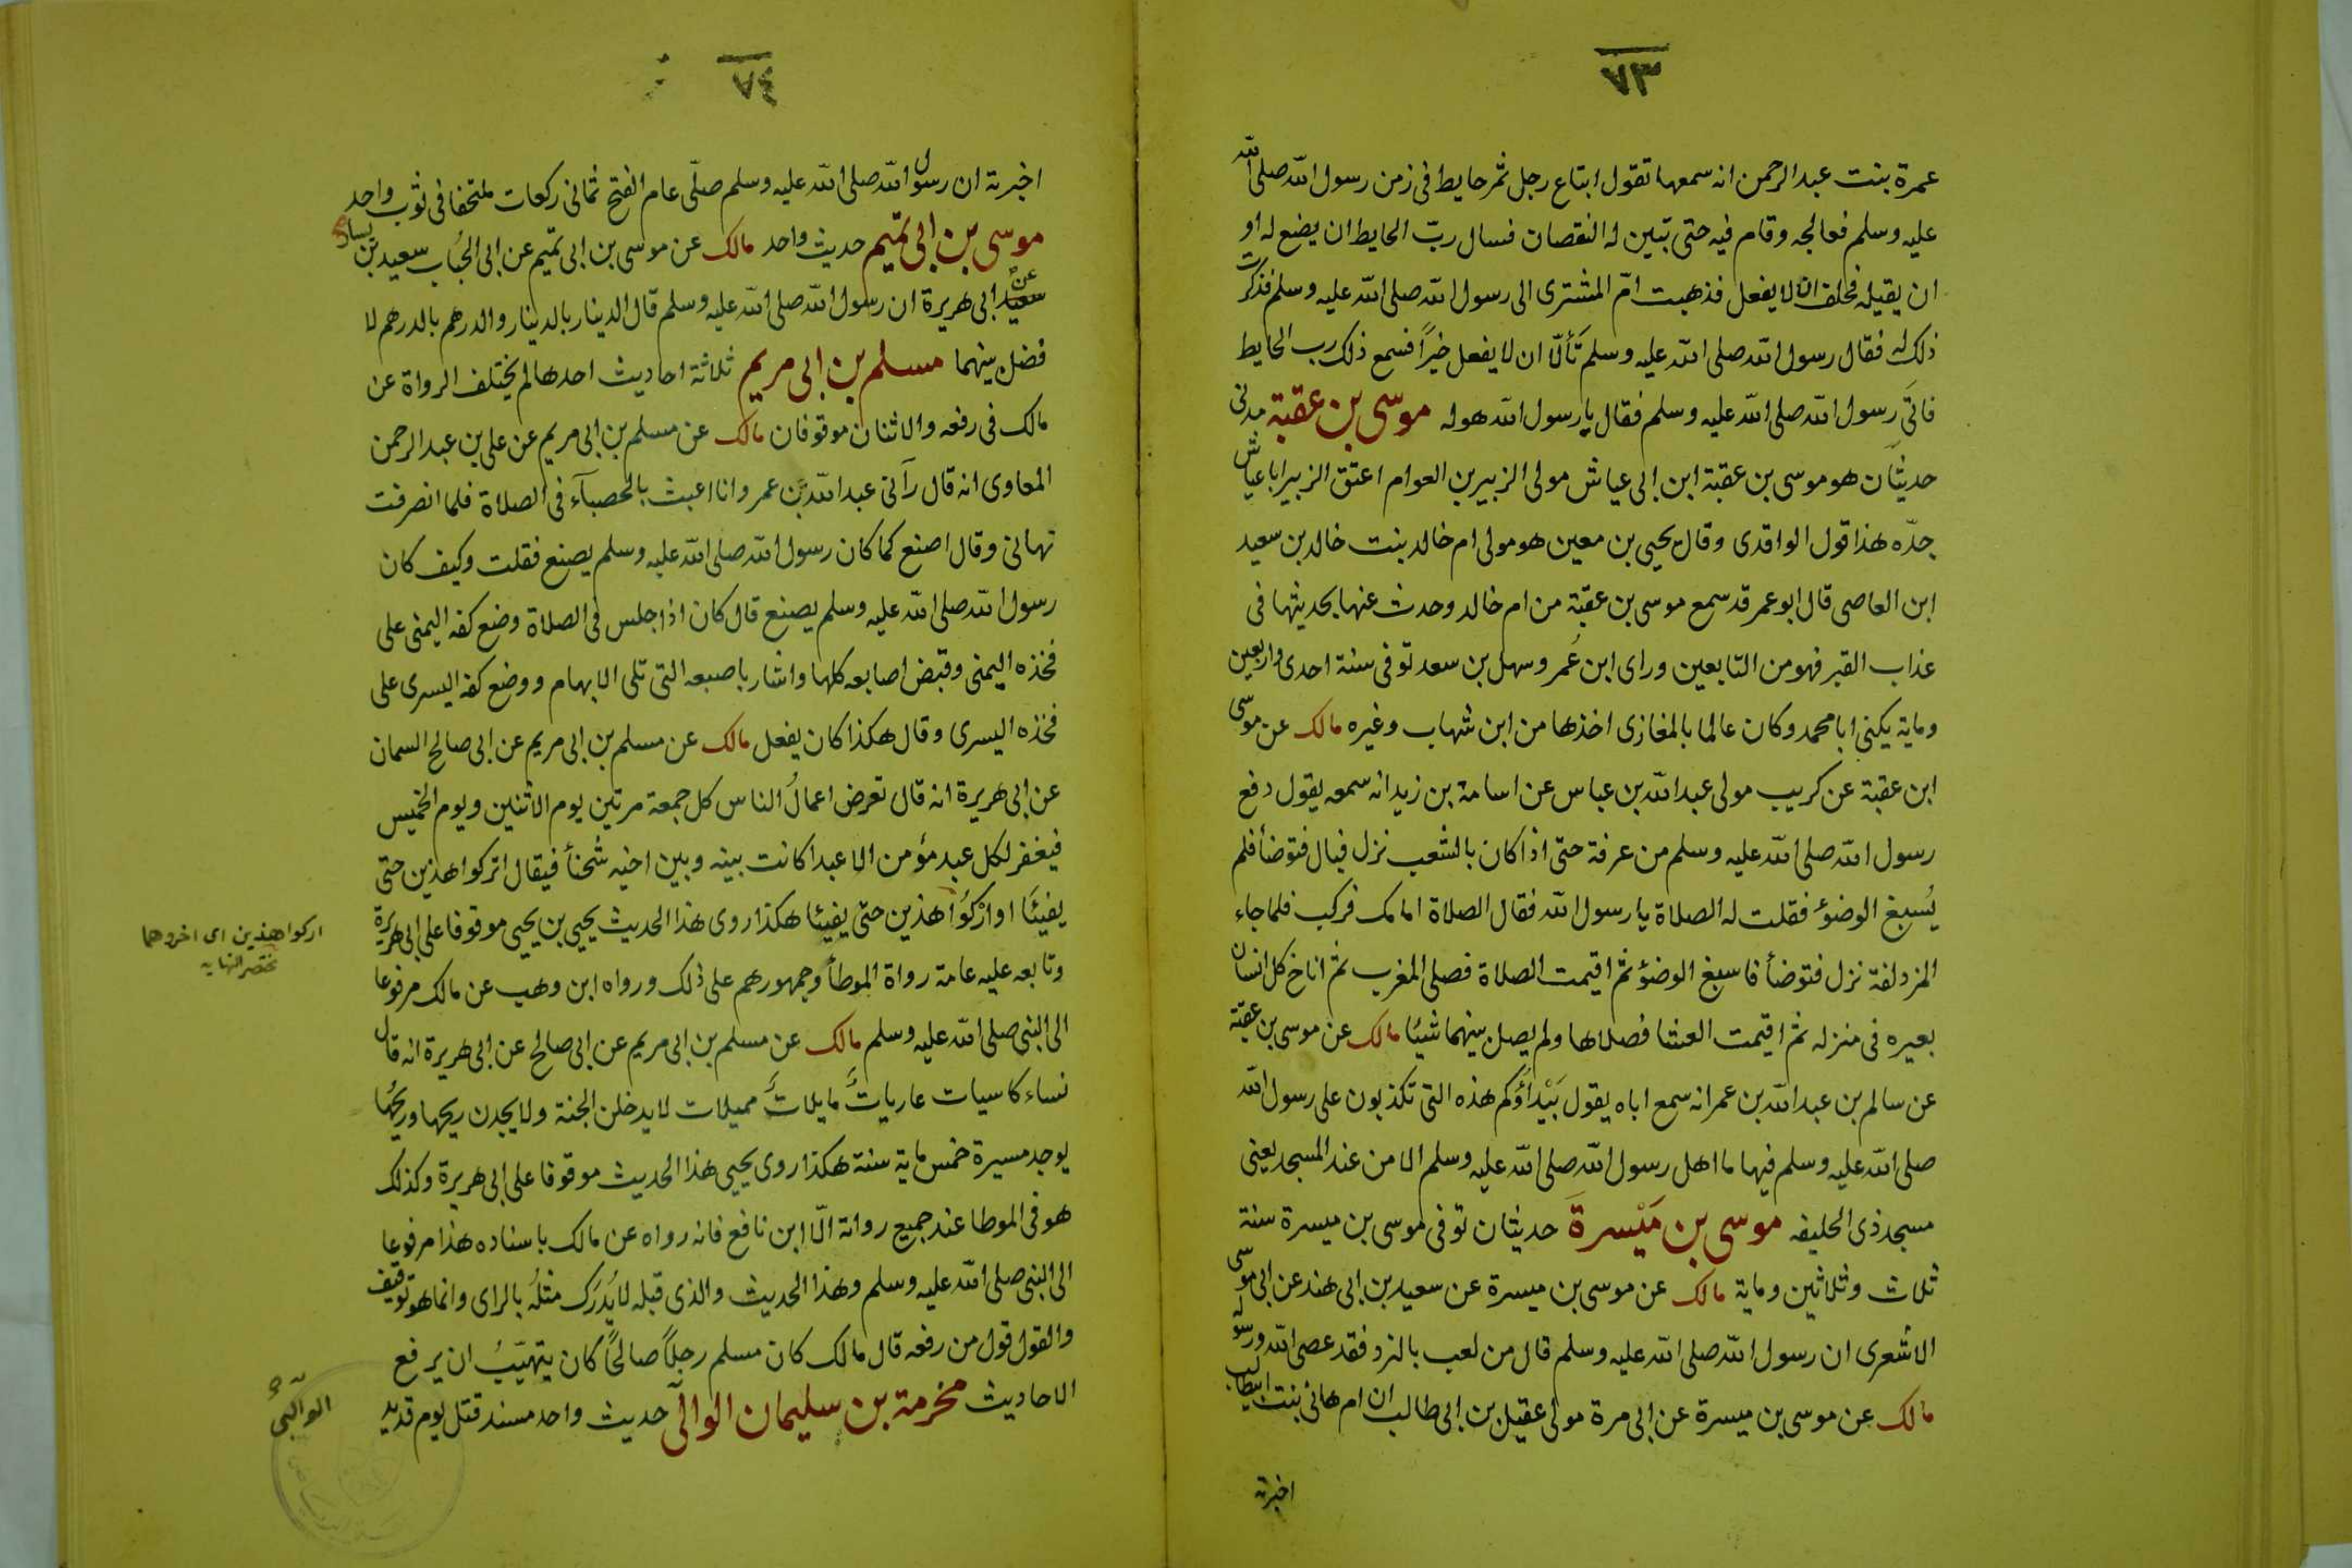 ٧٣
عمرة بنت عبد الرحمن انه سمعها تقول ابتاع رجل ثمر حايط فى زمن رسول الله صلى الله
عليه وسلم فعالجه وقام فيه حتى تبين له النقصان فسال ربّ الحايط ان يضع له او
ان يقيله فحلف ان لا يفعل فذهبت امّ المشترى الى رسول الله صلى الله عليه وسلم فذكرت
ذلك له فقال رسول الله صلى الله عليه وسلم تَألّا ان لا يفعل خيراً فسمع ذلك رب الحايط
فاتَى رسول الله صلى الله عليه وسلم فقال يا رسول الله هو له موسى بن عقبة مدنى
حديثان هو موسى بن عقبة ابن ابى عياش مولى الزبير بن العوام اعتق الزبير ابا عياش
جدّه هذا قول الواقدى وقال يحيى بن معين هو مولى ام خالد بنت خالد بن سعيد
ابن العاصى قال ابو عمر قد سمع موسى بن عقبة من ام خالد وحدث عنها بحديثها فى
عذاب القبر فهو من التابعين وراى ابن عُمر وسهل بن سعد توفى سنة احدى واربعين
وماية يكنى ابا محمد وكان عالما بالمغازى اخذها من ابن شهاب وغيره مالك عن موسى
ابن عقبة عن كريب مولى عبد الله بن عباس عن اسامة بن زيد انه سمعه يقول دفع
رسول الله صلى الله عليه وسلم من عرفة حتى اذا كان بالشعب نزل فبال فتوضأ فلم
يُسبغ الوضؤ فقلت له الصلاة يا رسول الله فقال الصلاة امامك فركب فلما جاء
المزدلفة نزل فتوضأ فاسبغ الوضؤ ثم اقيمت الصلاة فصلى المغرب ثم اناخ كل انسان
بعيره فى منزله ثم اقيمت العشا فصلاها ولم يصل بينهما شيئا مالك عن موسى بن عقبة
عن سالم بن عبد الله بن عمر انه سمع اباه يقول بَيْداؤكم هذه التى تكذبون على رسول الله
صلى الله عليه وسلم فيها ما اهل رسول الله صلى الله عليه وسلم الا من عند المسجد يعنى
مسجد ذى الحليفه موسى بن مَيْسرةَ حديثان توفى موسى بن ميسرة سنة
ثلاث وثلاثين وماية مالك عن موسى بن ميسرة عن سعيد بن ابى هند عن ابى موسى
الأشعرى ان رسول الله صلى الله عليه وسلم قال من لعب بالنرد فقد عصى الله ورسوله
مالك عن موسى بن ميسرة عن ابى مرة مولى عقيل بن ابى طالب ان ام هانئ بنت ابيطالب
اخبرته
٧٤
اخبرته ان رسول الله صلى الله عليه وسلم صلّى عام الفتح ثمانى ركعات ملتحفا فى ثوب واحد
موسى بن ابى تميم حديث واحد مالك عن موسى بن ابى تميم عن ابى الحُباب سعيد بن يسار
سعيد عن ابى هريرة ان رسول الله صلى الله عليه وسلم قال الدينار بالدينار والدرهم بالدرهم لا
فضل بينهما مسلم بن ابى مريم ثلاثة احاديث احدها لم يختلف الرواة عن
مالك فى رفعه والاثنان موقوفان مالك عن مسلم بن ابى مريم عن على بن عبد الرحمن
المعاوى انه قال رآنى عبد الله بن عمر وانا اعبث بالحصبآء فى الصلاة فلما انصرفت
نهانى وقال اصنع كما كان رسول الله صلى الله عليه وسلم يصنع فقلت وكيف كان
رسول الله صلى الله عليه وسلم يصنع قال كان اذا جلس فى الصلاة وضع كفه اليمنى على
فخذه اليمنى وقبض اصابعه كلها واشار باصبعه التى تلى الابهام ووضع كفه اليسرى على
فخذه اليسرى وقال هكذا كان يفعل مالك عن مسلم بن ابى مريم عن ابى صالح السمان
عن ابى هريرة انه قال تعرض اعمالُ الناس كل جمعة مرتين يوم الاثنين ويوم الخميس
فيغفر لكل عبد مؤمن الا عبدا كانت بينه وبين اخيه شحنأ فيقال اتركوا هذين حتى
يفيئا او ارْكُوا هذين حتى يفيئا هكذا روى هذا الحديث يحيى بن يحيى موقوفا على ابى هريرة
وتابعه عليه عامة رواة الموطأ وجمهورهم على ذلك ورواه ابن وهب عن مالك مرفوعا
الى النبى صلى الله عليه وسلم مالك عن مسلم بن ابى مريم عن ابى صالح عن ابى هريرة انه قال
نساء كاسيات عارياتٌ مايلاتٌ مميلات لا يدخلن الجنة ولا يجدن ريحها وريحُها
يوجد مسيرة خمس ماية سنة هكذا روى يحيى هذا الحديث موقوفا على ابى هريرة وكذلك
هو فى الموطا عند جميع رواته الّا ابن نافع فانه رواه عن مالك باسناده هذا مرفوعا
الى النبى صلى الله عليه وسلم وهذا الحديث والذى قبله لا يُدرَك مثلُه بالراى وانما هو توقيف
والقول قول من رفعه قال مالك كان مسلم رجلاً صالحًا كان يتهيّبُ ان يرفع
الاحاديث مخرمة بن سليمان الوالبى حديث واحد مسند قتل يوم قديد
اركوا هذين اى اخروهما
مختصر النهايه
الوالبى